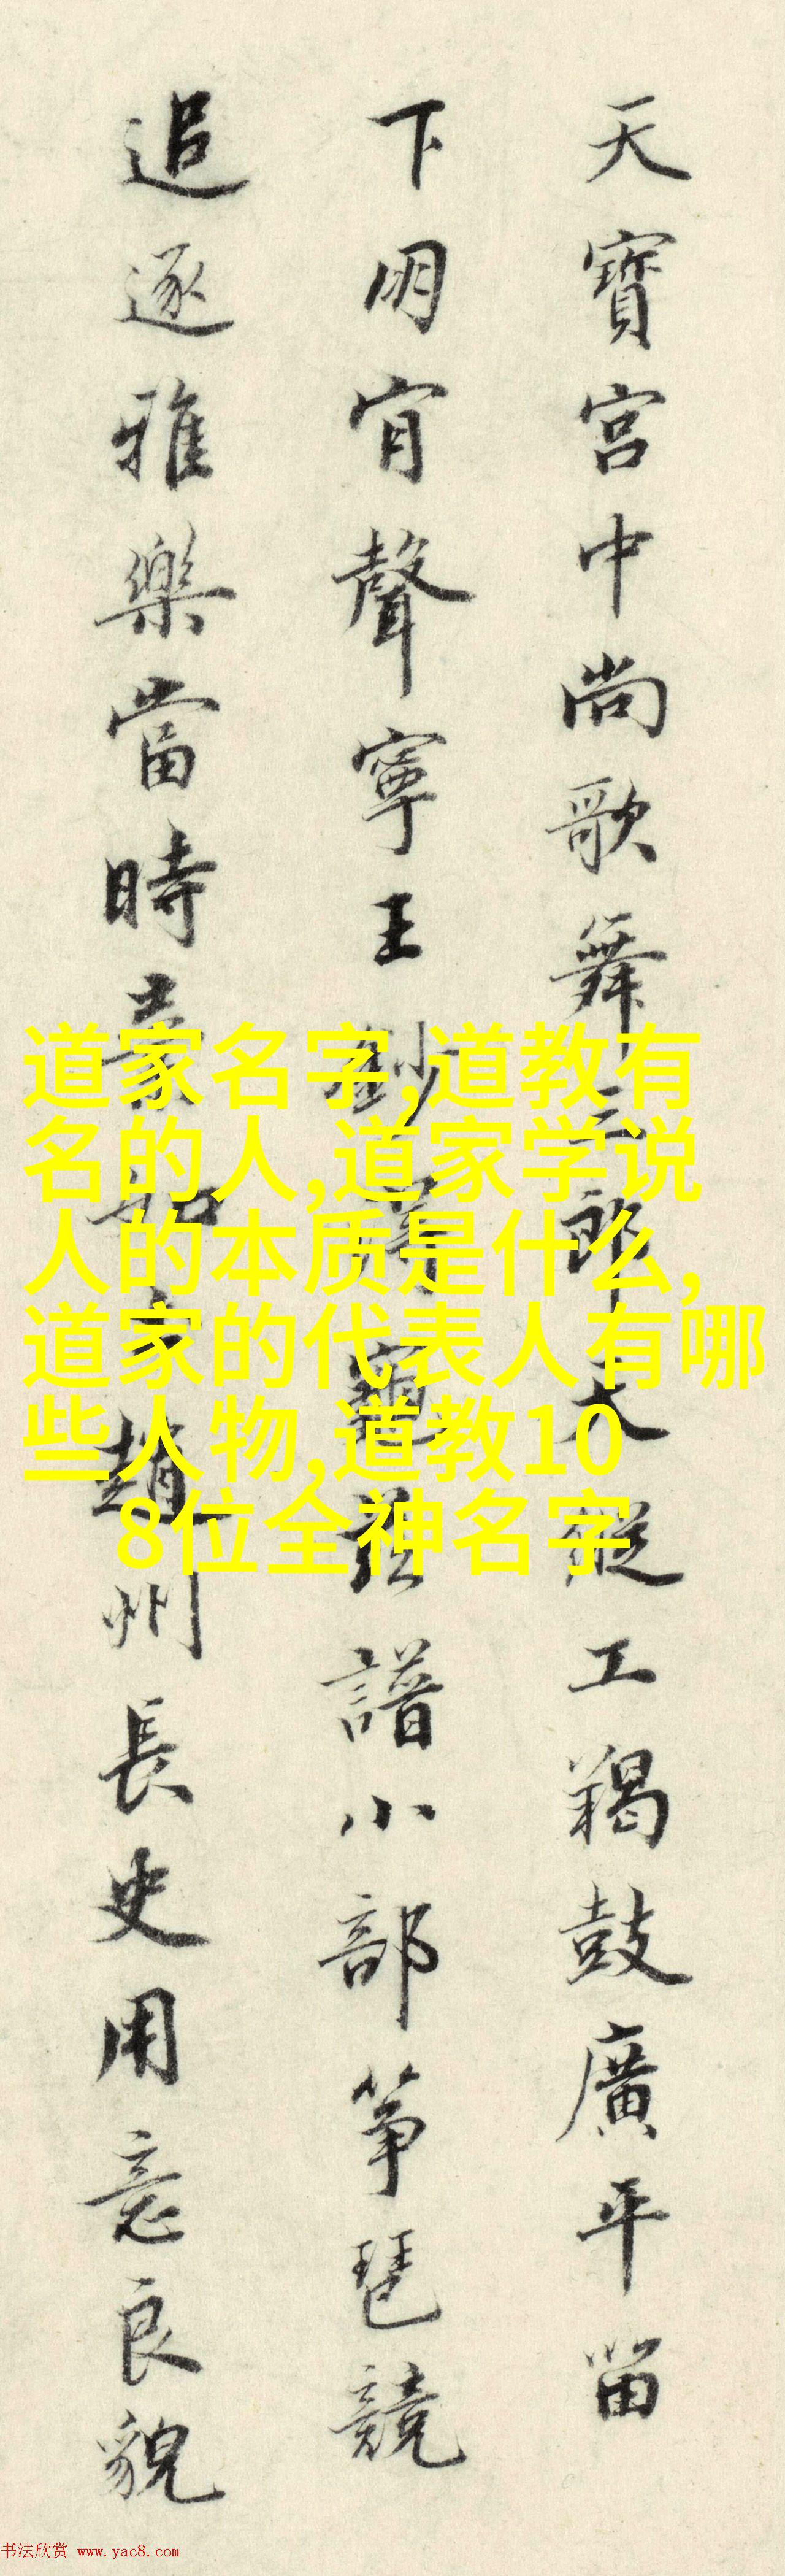 天寶宮中尚歌舞三郎天縱工羯鼓廣平留
下用宵聲寧王
譜小部筝琶競
追逐雅樂當時
趙州長史用意良貌
道家名字,道教有
名的人,道家学说
人的本质是什么,
道家的代表人有哪
些人物,道教10
8位全神名字
书法欣赏 www.yac8.com